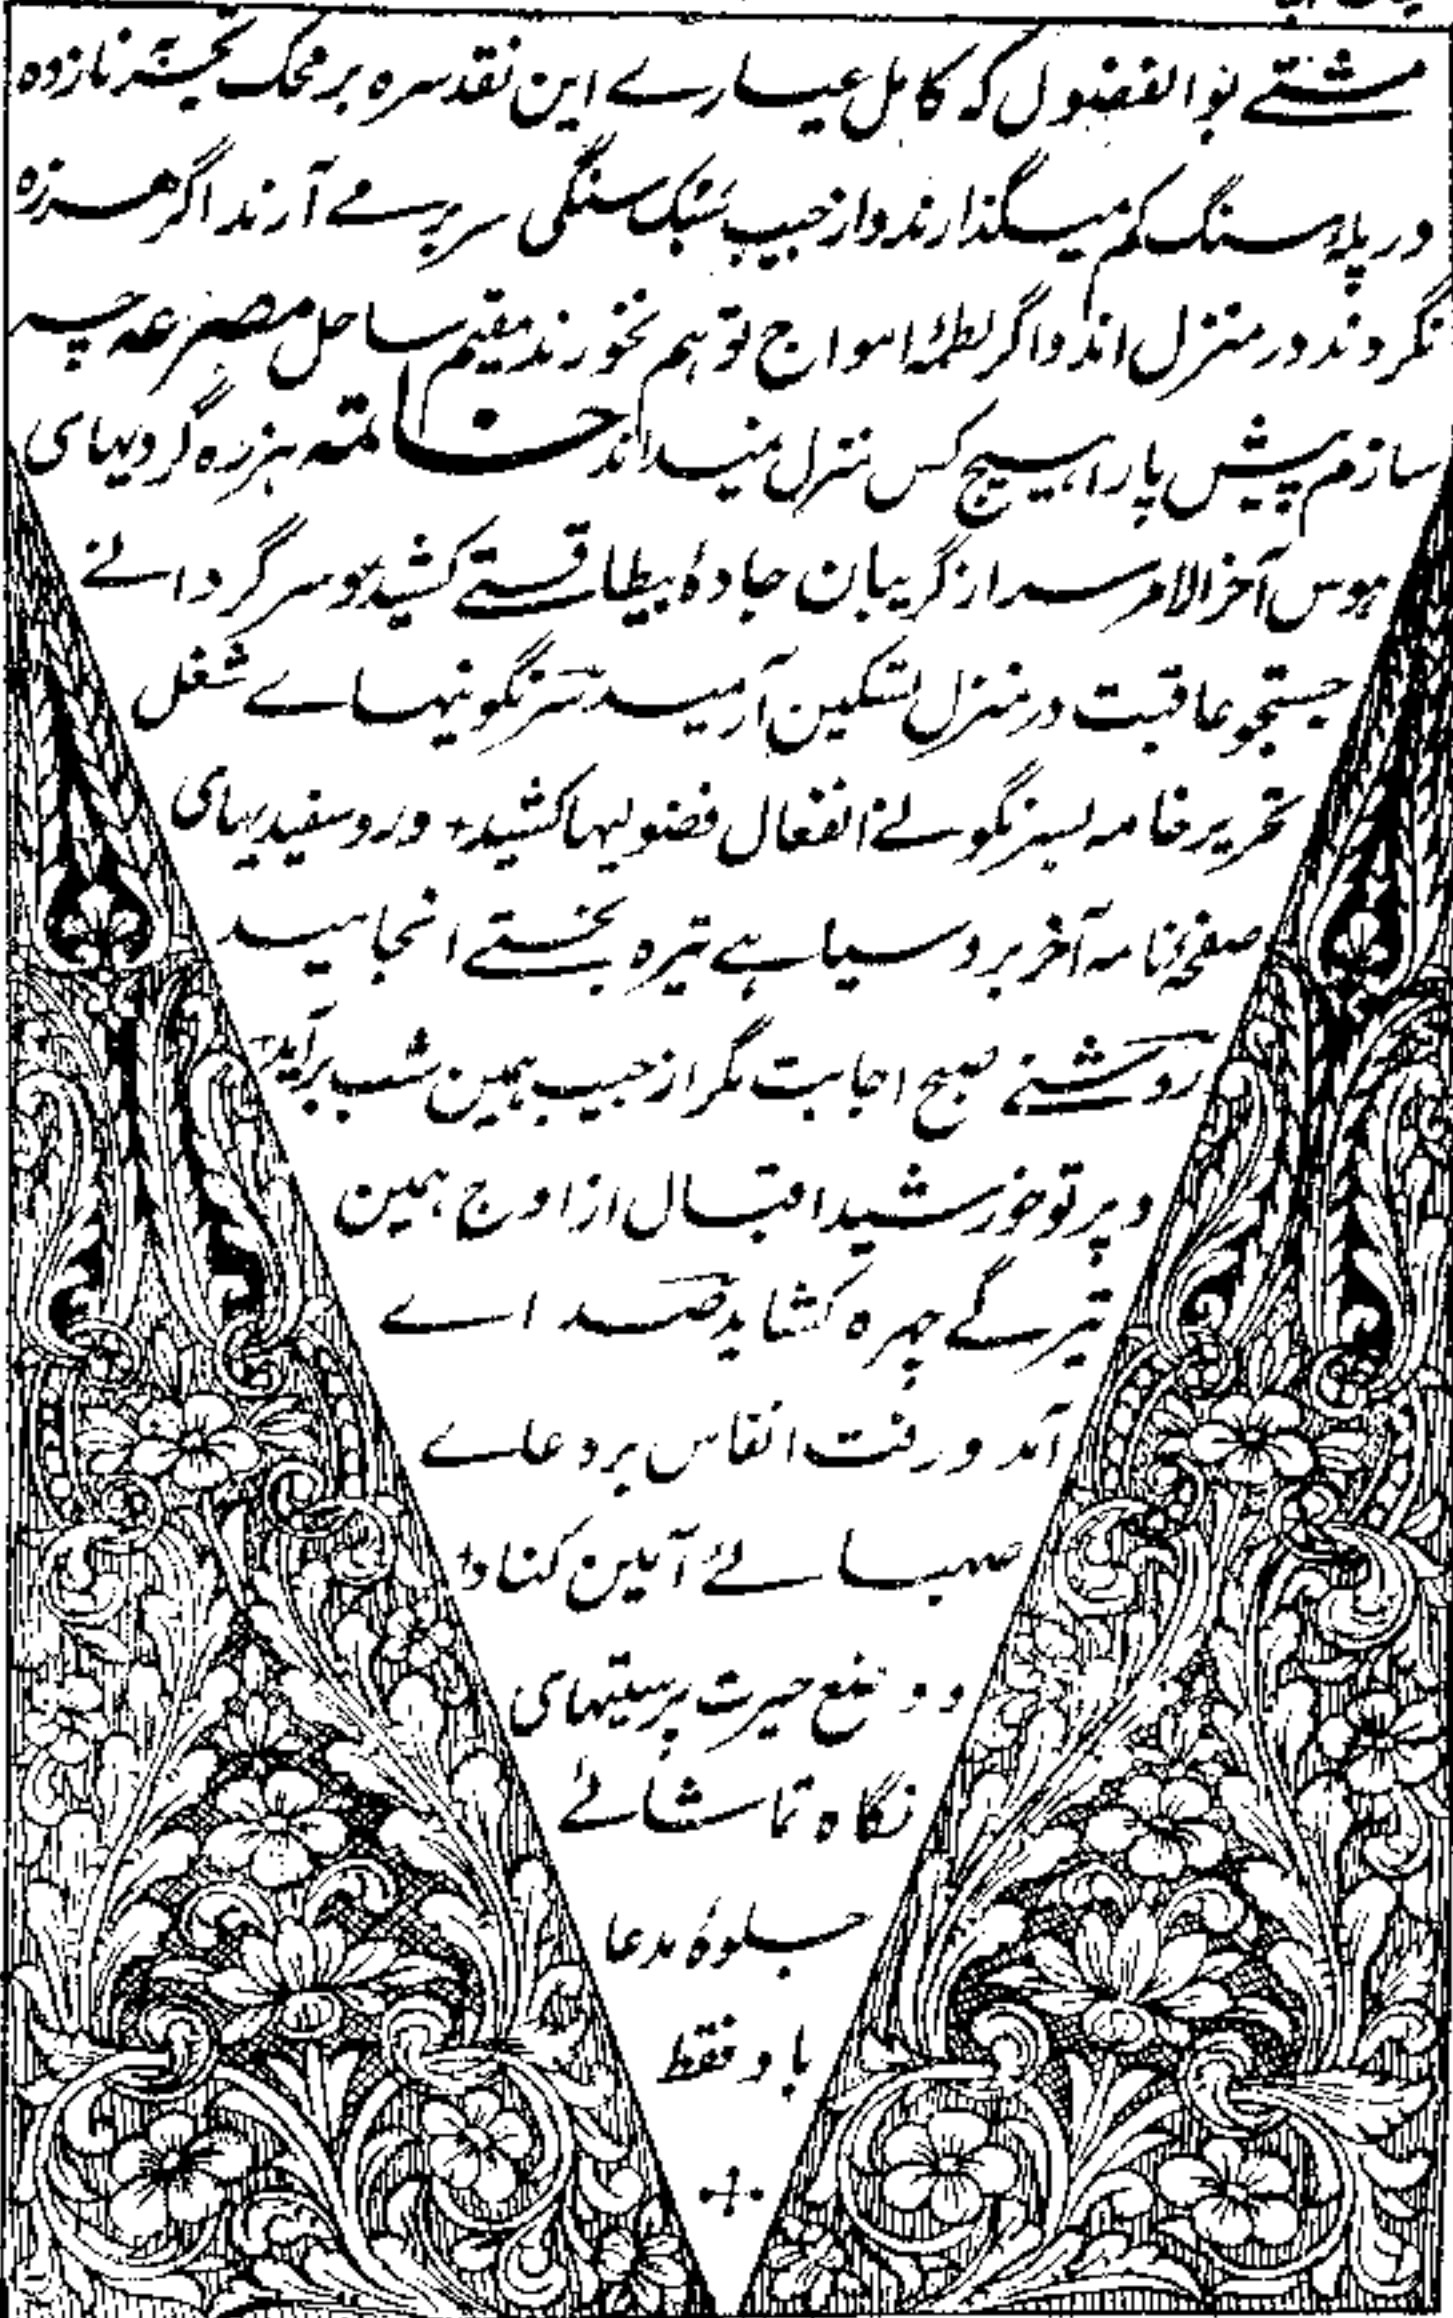 مشتے بوالفضول کہ کامل عیارے این نقد سرہ بر محک تجربہ نازدہ
در پلہ سنگ کم میگذارند و از جیب سبک سنگی سر بر مے آرند اگر ہرزہ
نگردند در منزل اند و اگر لطمۂ امواج توہم نخورند مقیم ساحل مصرعہ چہ
سازم پیش پا را ہیچ کس منزل نمیداند خاتمہ ہرزہ گردیہای
ہوس آخر الامر سر از گریبان جادۂ بیطاقتے کشید و سرگردانے
جستجو عاقبت در منزل تسکین آرمید سرنگونیہاے شغل
تحریر خامہ بسرنگونے انفعال فضولیہا کشید و رو سفیدیہای
صفحۂ نامہ آخر برو سیاہے تیرہ بختے انجامید
روشنے صبح اجابت مگر از جیب ہمین شب برآید
و پرتو خورشید اقبال از اوج ہمین
تیرگے چہرہ کشاید صداے
آمد و رفت انفاس بر دعاے
صہبائے آمین کناد
و وضع حیرت پرستیہای
نگاہ تماشائے
جلوۂ مدعا
باد فقط